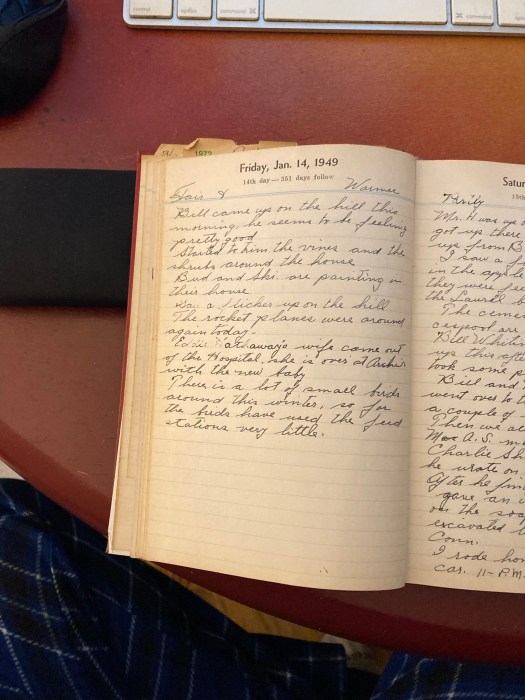 control
option
command ⌘
command ⌘
1979
Friday, Jan. 14, 1949
14th day — 351 days follow
Fair &
Warmer
Bill came up on the hill this
morning, he seems to be feeling
pretty good
Started to trim the vines and the
shrubs around the house
Bud and Ski. are painting in
their house
Saw a flicker up on the hill.
The rocket planes were around
again today.
Eddie Hathaway's wife came out
of the Hospital, she is over at
with the new baby
There is a lot of small birds
around this winter, so far
the birds have used the feed
stations very little.
Satur
15th
Mr. H was up
got up there
up from B
I saw a f
in the apple
they were fee
the Laurel b
The cemen
cesspool are
Bill Whitin
up this aft
took some p
Bill and
went over to t
a couple of
Then we al
Mac A. S. m
Charlie Sh
he wrote on
After he fin
gave an
on the soa
excavated
Conn.
I rode hom
car. 11- P.M.